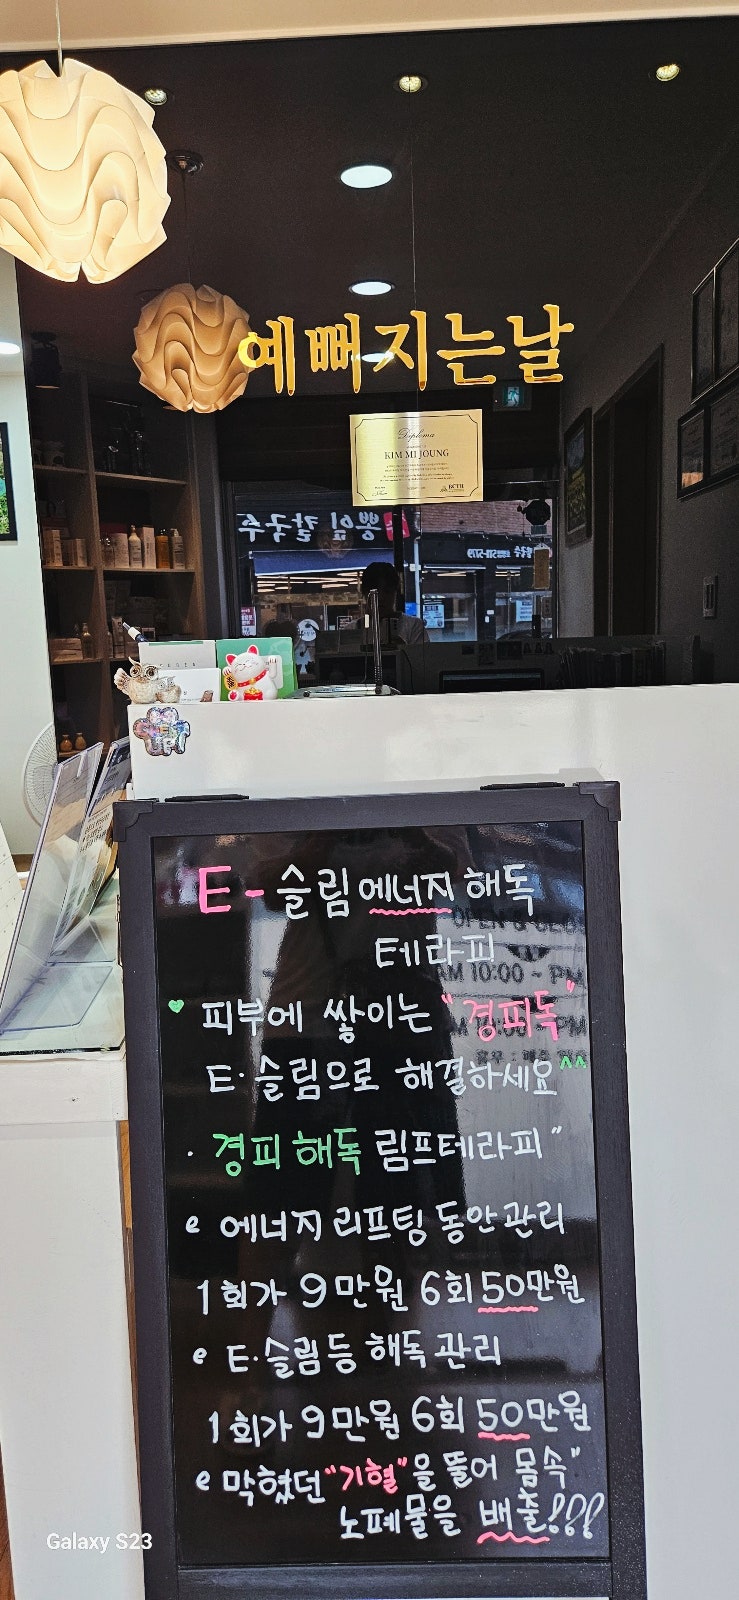 예뻐지는날
Diploma
KIM MI JOUNG
BCTH
뽕잎 칼국수
E-슬림 에너지 해독
테라피
피부에 쌓이는 "경피독"
E·슬림으로 해결하세요^^
· 경피 해독 림프테라피"
e 에너지 리프팅 동안관리
1회가 9만원 6회 50만원
e E·슬림등 해독 관리
1회가 9만원 6회 50만원
e 막혔던 "기혈"을 뚫어 몸속"
노폐물을 배출!!!
AM 10:00 ~ PM
Galaxy S23